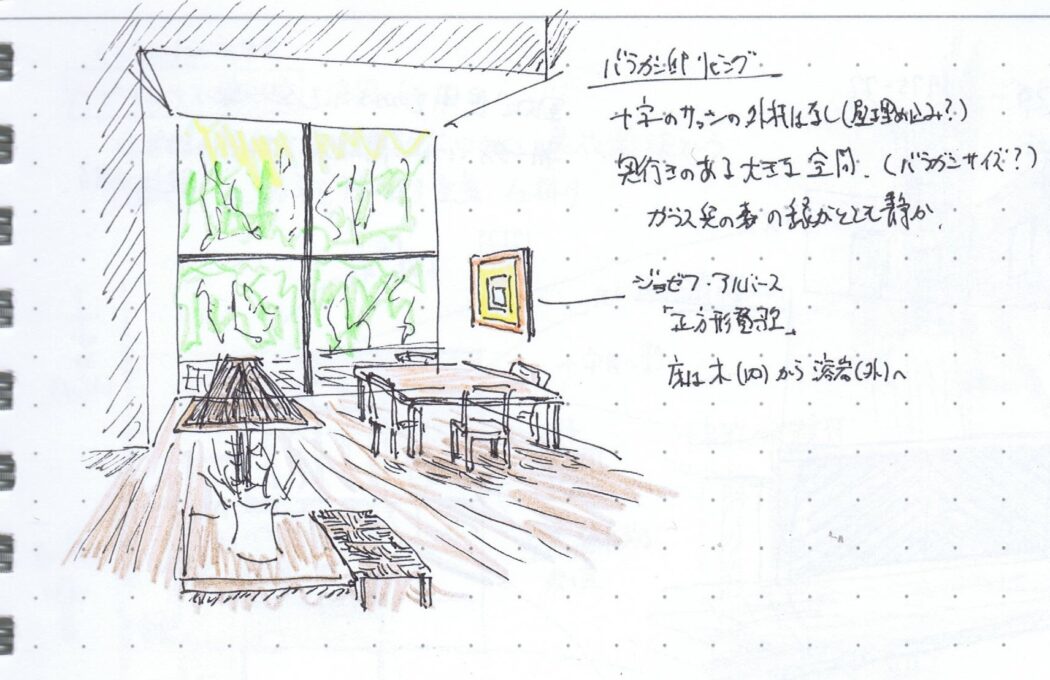 バラガン邸 リビング
十字のサッシの外枠はなし(壁埋め込み?)
奥行きのある大きな空間.(バラガンサイズ?)
ガラス先の森の緑がとても静か.
ジョゼフ・アルバース
「正方形賛歌」
床は木(内)から溶岩(外)へ